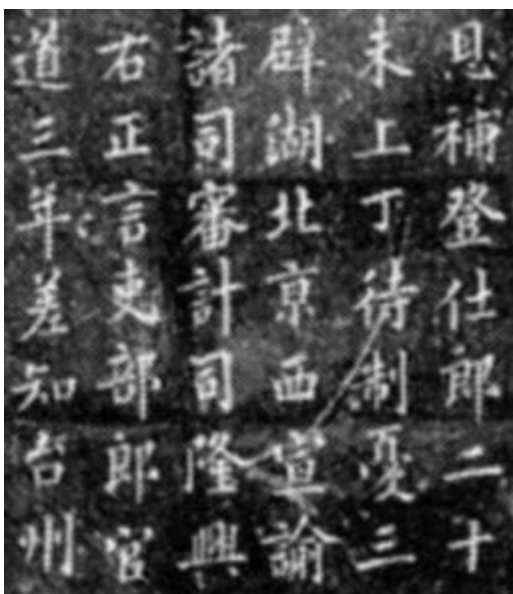 恩補登仕郎二十
未上丁待制憂三
辟湖北京西宣諭
諸司審計司隆興
右正言吏部郎官
道三年差知台州